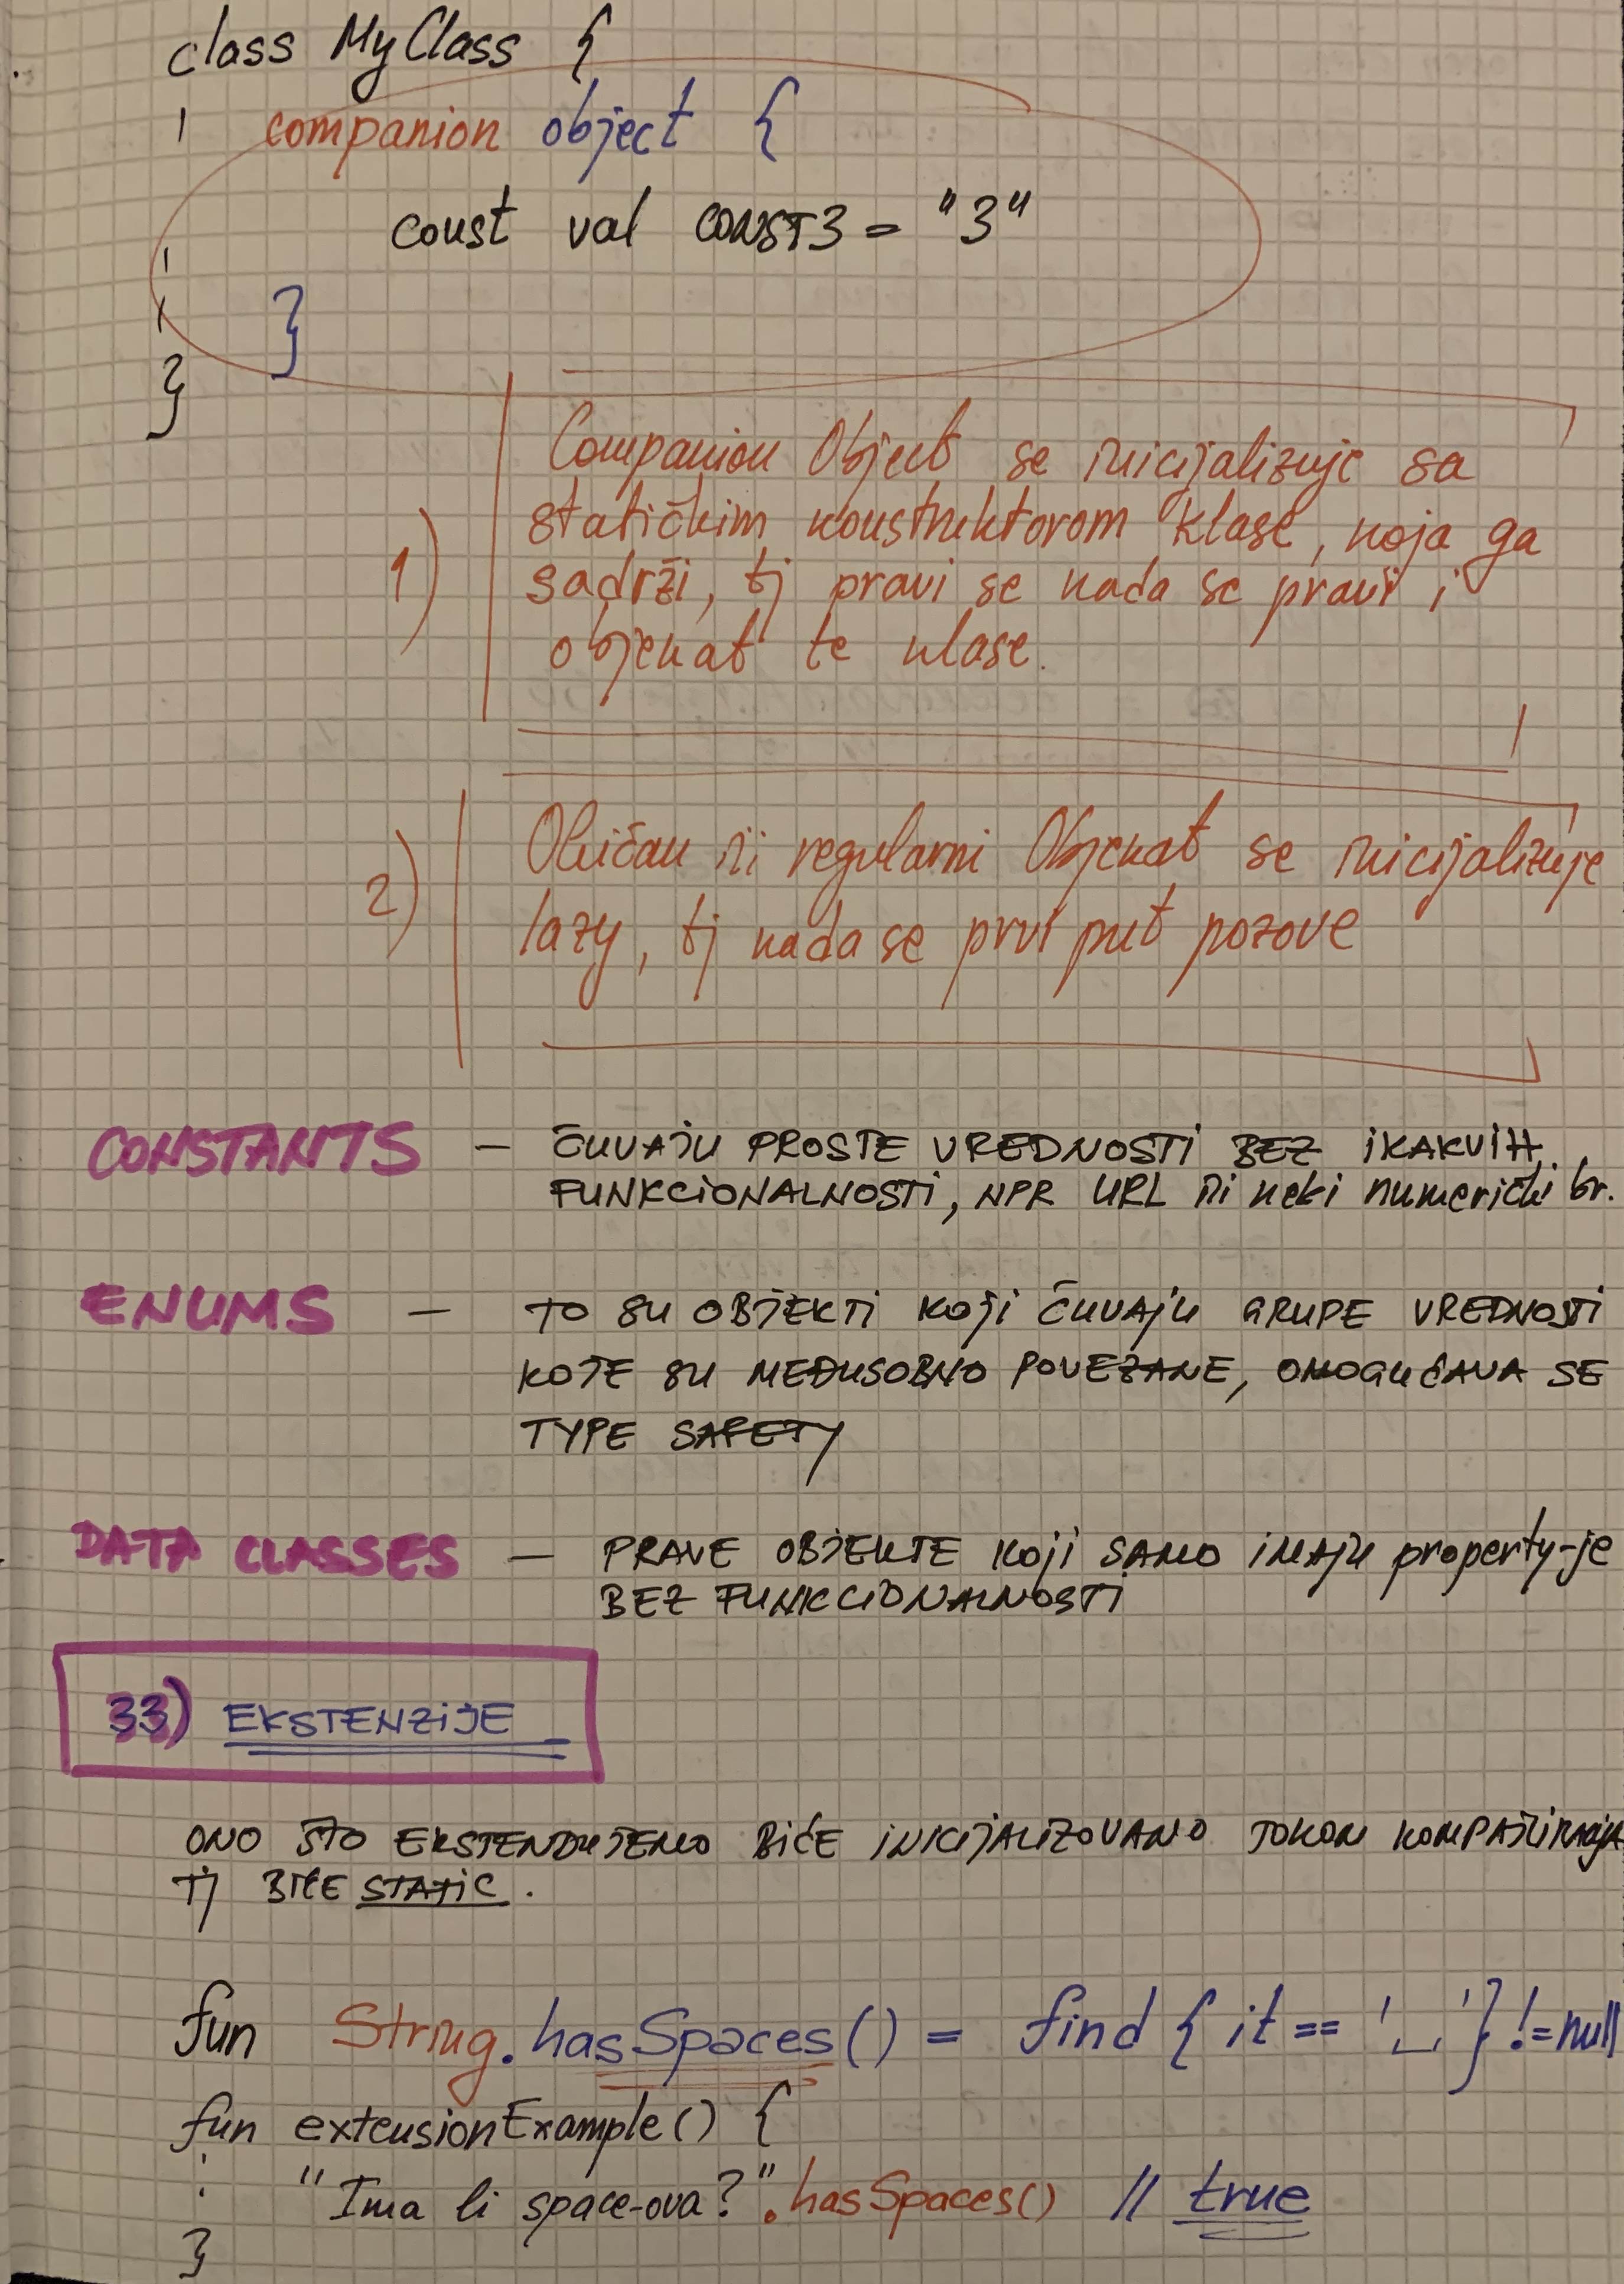 class MyClass {
companion object {
const val CONST3 = "3"
}
}
Companion Object se inicijalizuje sa
1) statičkim konstruktorom klase, koja ga
sadrži, tj pravi se kada se pravi i
objekat te klase.
Običan ili regularni Objekat se inicijalizuje
2) lazy, tj kada se prvi put pozove
CONSTANTS - ČUVAJU PROSTE VREDNOSTI BEZ IKAKVIH
FUNKCIONALNOSTI, NPR URL ili neki numerički br.
ENUMS - TO SU OBJEKTI KOJI ČUVAJU GRUPE VREDNOSTI
KOJE SU MEĐUSOBNO POVEZANE, OMOGUĆAVA SE
TYPE SAFETY
DATA CLASSES - PRAVE OBJEKTE KOJI SAMO IMAJU property-je
BEZ FUNKCIONALNOSTI
33) EKSTENZIJE
ONO ŠTO EKSTENDUJEMO BIĆE INICIJALIZOVANO TOKOM KOMPAJLIRANJA
TJ BIĆE STATIC.
fun String.hasSpaces() = find { it == '␣' } != null
fun extensionExample() {
"Ima li space-ova?".hasSpaces() // true
}